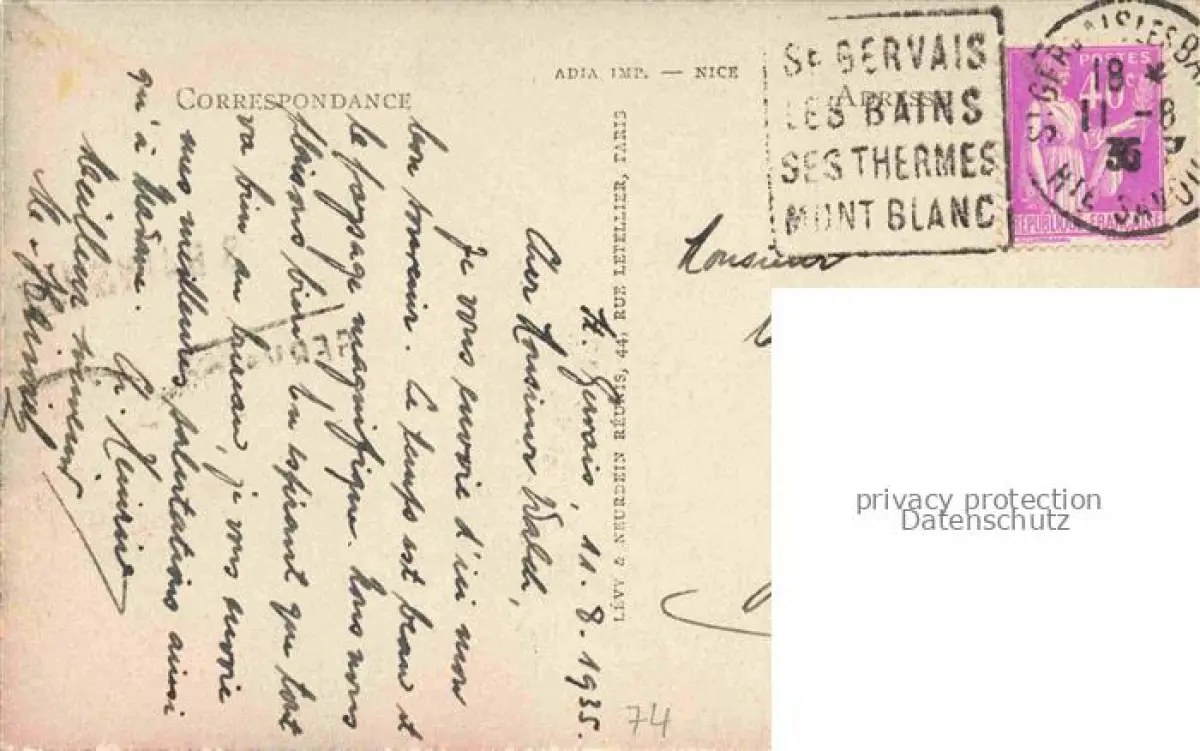 CORRESPONDANCE
ADIA IMP. — NICE
ADRESSE
St GERVAIS
LES BAINS
SES THERMES
MONT BLANC
ST GERVAIS LES BAINS
HTE SAVOIE
18 *
11 -8
35
POSTES
40c
REPUBLIQUE FRANCAISE
LÉVY & NEURDEIN RÉUNIS, 44, RUE LETELLIER, PARIS
Monsieur
St. Gervais, 11. 8. 1935.
Cher Monsieur Walch,
Je vous envoie d'ici mon
bon souvenir. Le temps est beau et
le paysage magnifique. Nous nous
plaisons bien. En espérant que tout
va bien au bureau, je vous envoie
mes meilleures salutations ainsi
qu'à Madame.
Meilleurs
74
privacy protection
Datenschutz